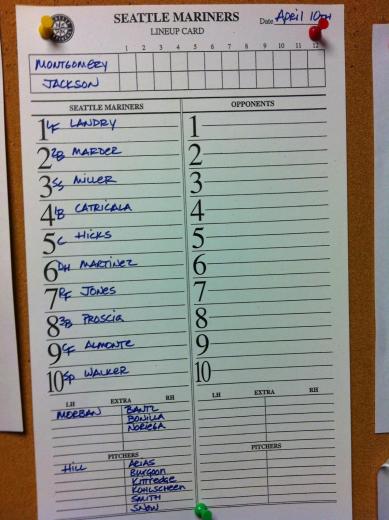 SEATTLE MARINERS
LINEUP CARD
Date April 10TH
1 2 3 4 5 6 7 8 9 10 11 12
MONTGOMERY
JACKSON
SEATTLE MARINERS
1 LF LANDRY
2 2B MARDER
3 SS MILLER
4 1B CATRICALA
5 C HICKS
6 DH MARTINEZ
7 RF JONES
8 3B PROSCIA
9 CF ALMONTE
10 SP WALKER
LH EXTRA RH
MORBAN BANTZ
BONILLA
NORIEGA
PITCHERS
HILL ARIAS
BURGOON
KITTREDGE
KOHLSCHEEN
SMITH
SNOW
OPPONENTS
1
2
3
4
5
6
7
8
9
10
LH EXTRA RH
PITCHERS